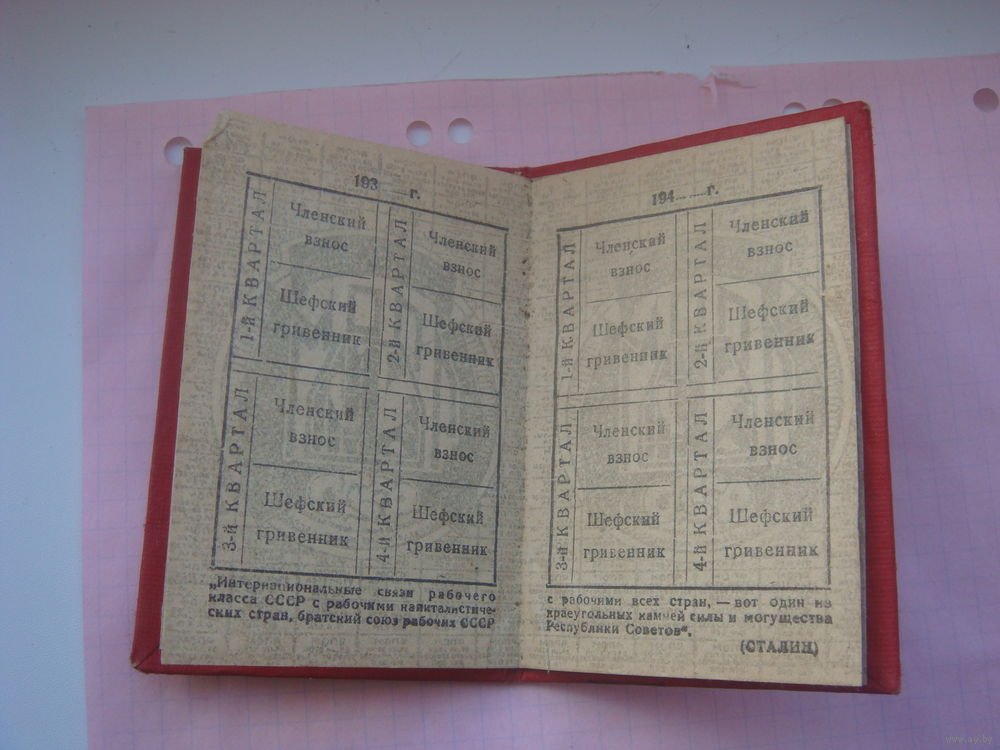 193 г.
1-й КВАРТАЛ
Членский
взнос
Шефский
гривенник
2-й КВАРТАЛ
Членский
взнос
Шефский
гривенник
3-й КВАРТАЛ
Членский
взнос
Шефский
гривенник
4-й КВАРТАЛ
Членский
взнос
Шефский
гривенник
„Интернациональные связи рабочего
класса СССР с рабочими капиталистиче-
ских стран, братский союз рабочих СССР
194 г.
1-й КВАРТАЛ
Членский
взнос
Шефский
гривенник
2-й КВАРТАЛ
Членский
взнос
Шефский
гривенник
3-й КВАРТАЛ
Членский
взнос
Шефский
гривенник
4-й КВАРТАЛ
Членский
взнос
Шефский
гривенник
с рабочими всех стран, — вот один из
краеугольных камней силы и могущества
Республики Советов“.
(СТАЛИН)
www.ay.by